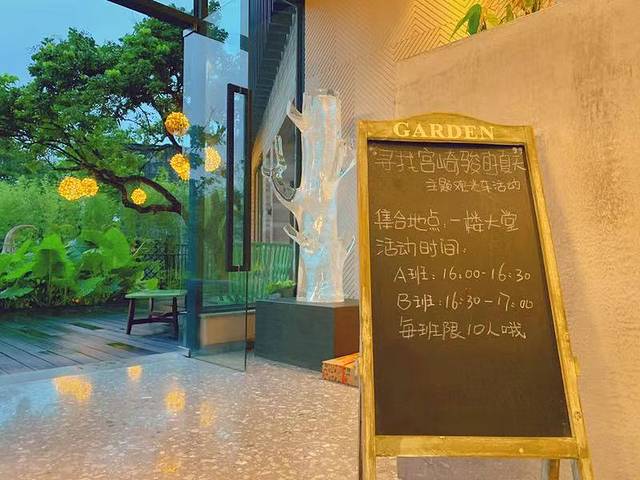 GARDEN
"寻找宫崎骏的夏天"
主题观光车活动
集合地点:一楼大堂
活动时间:
A班:16:00-16:30
B班:16:30-17:00
每班限10人哦